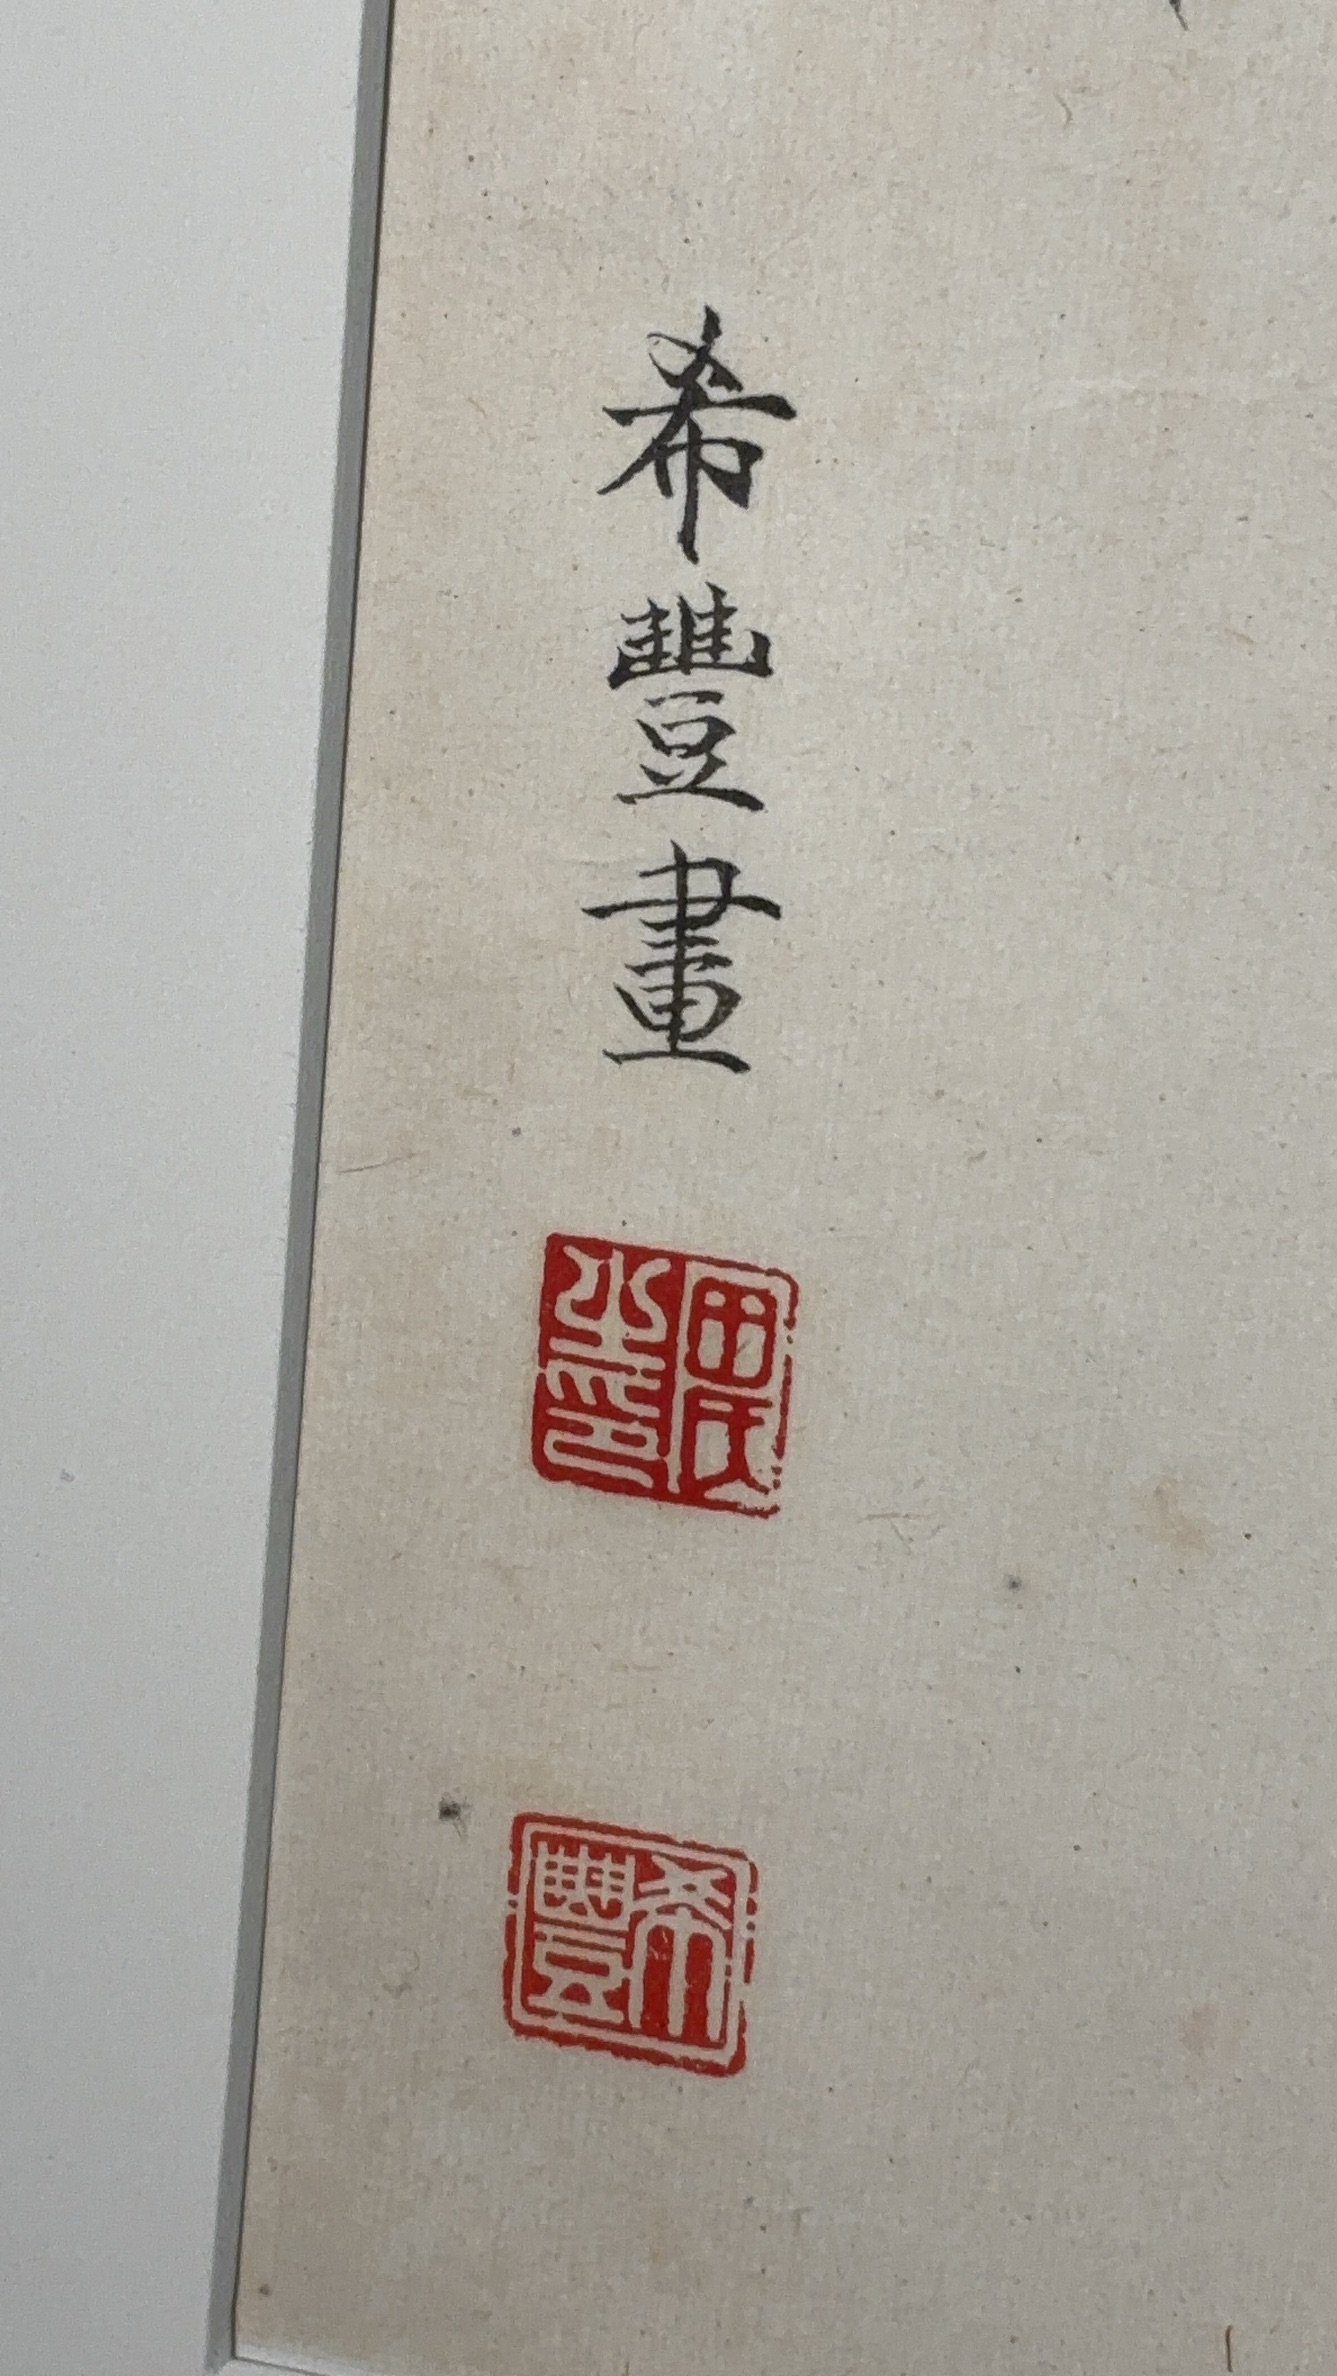 希豐畫
田氏
印
希豐